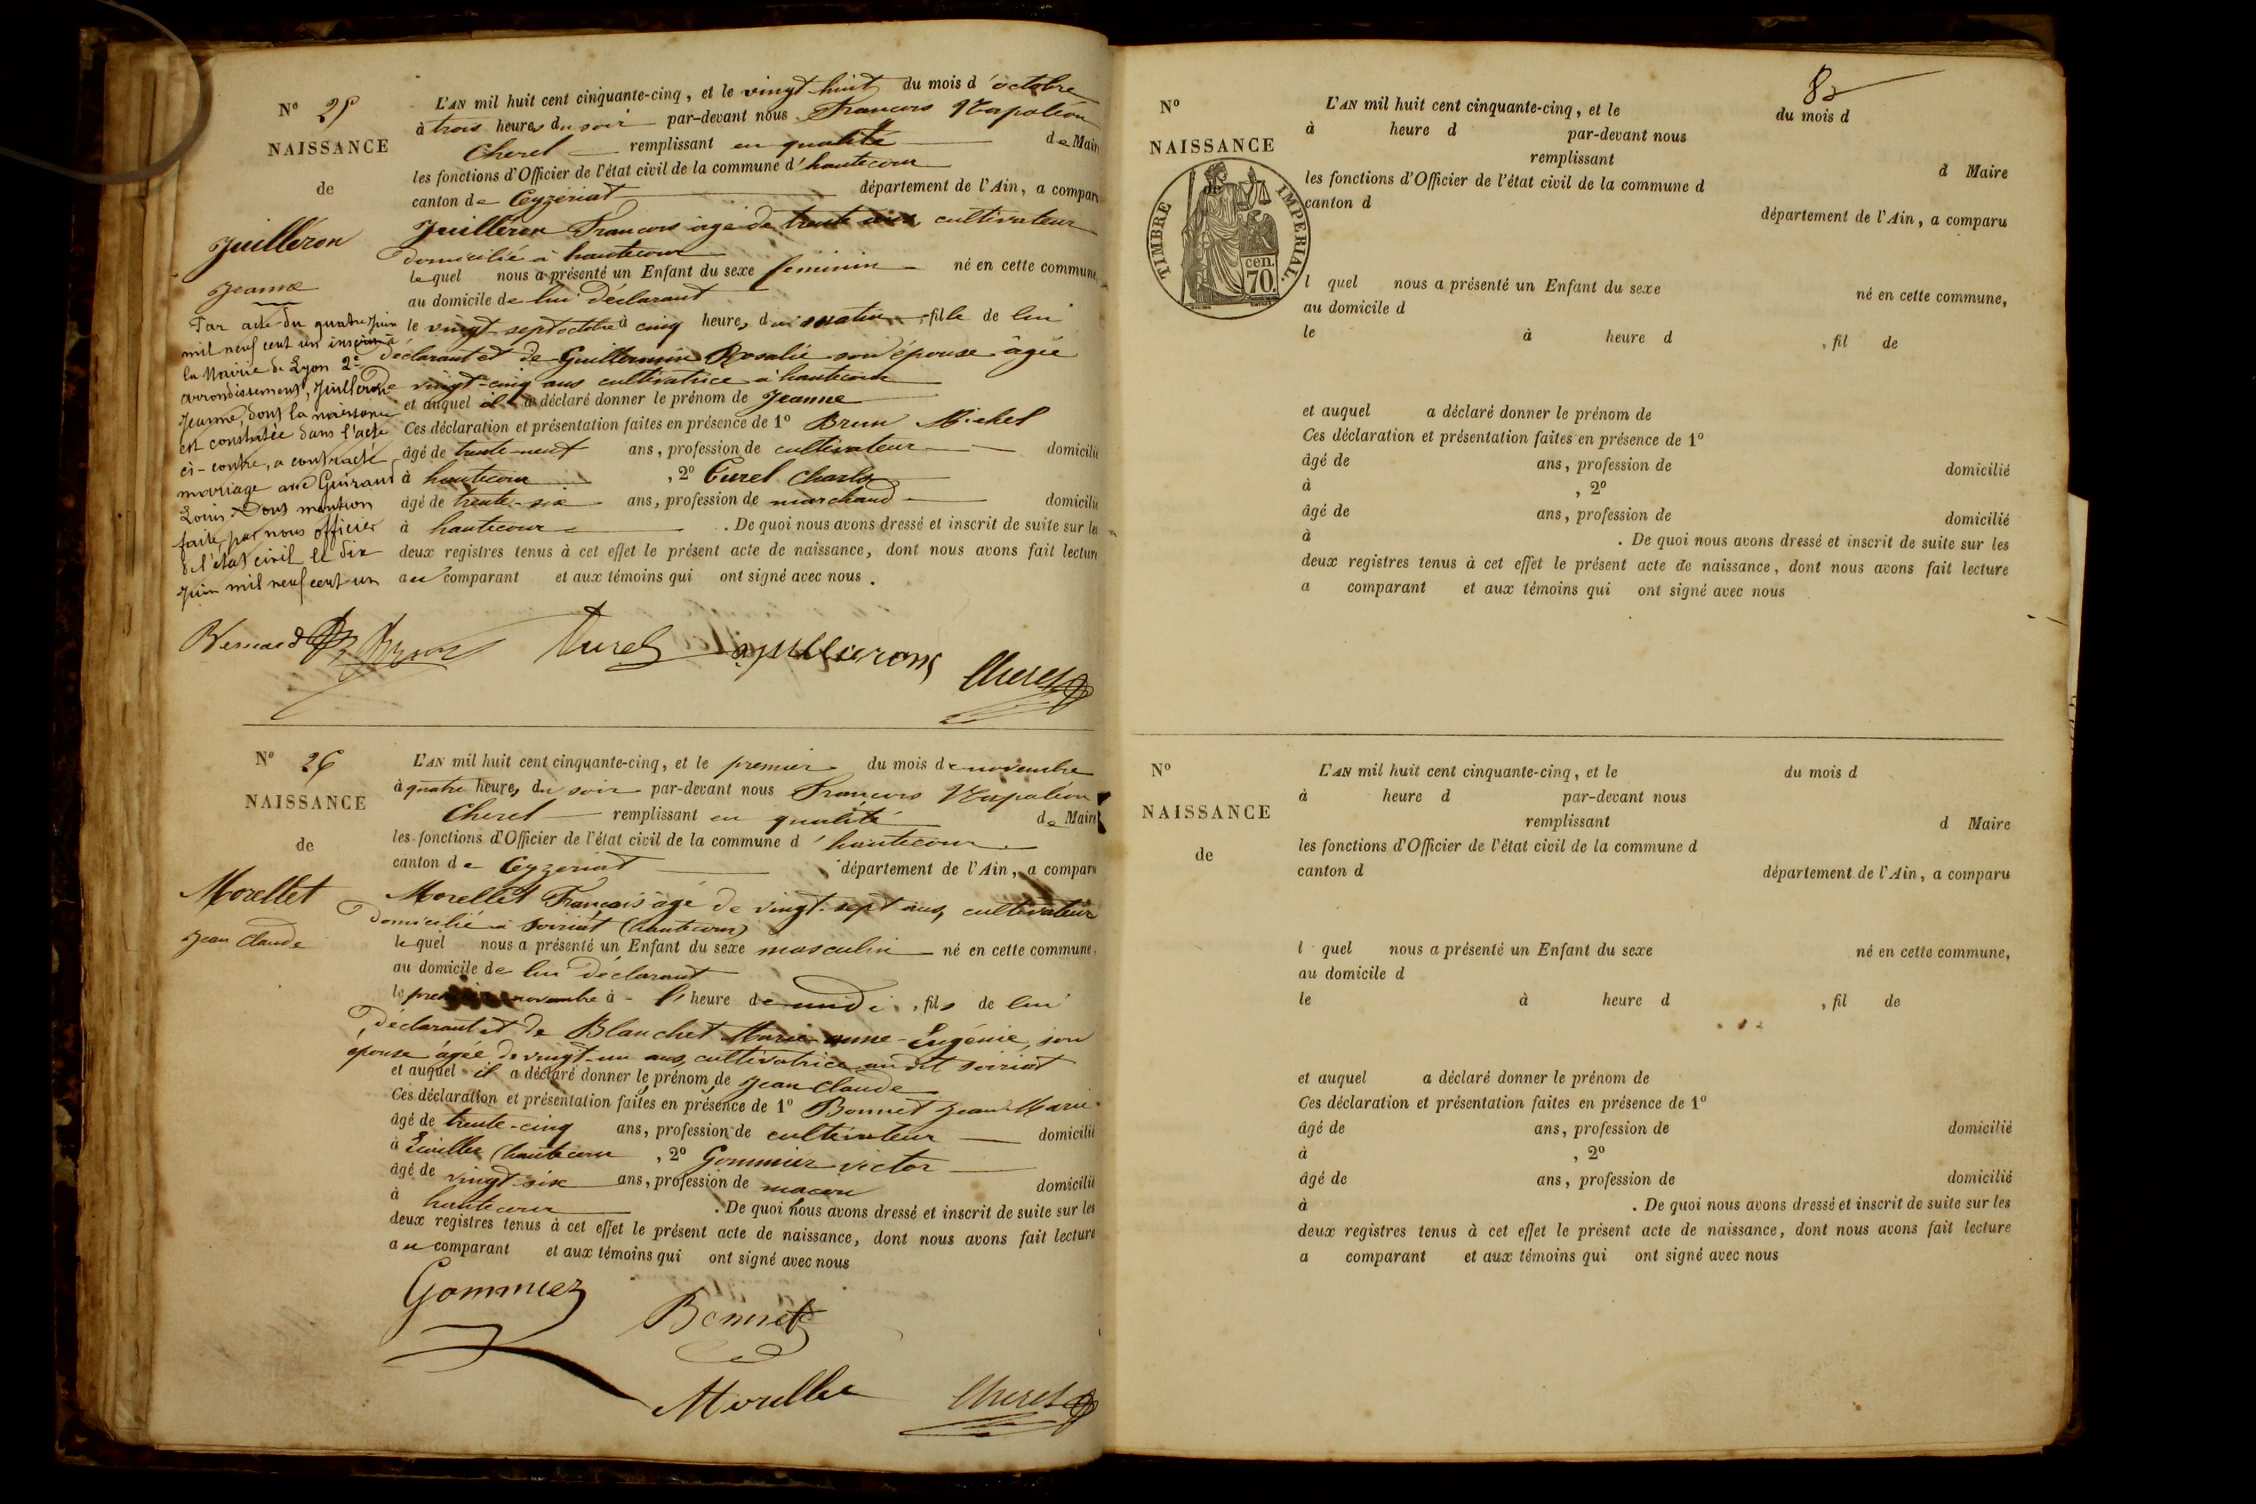 N° 25
NAISSANCE
de
Juilleron
Jeanne
Par acte du quatre Juin
mil neuf cent un inscrit à
la Mairie de Lyon 2e
arrondissement, Juilleron
Jeanne, dont la naissance
est constatée dans l'acte
ci-contre, a contracté
mariage avec Guiraud
Louis. Dont mention
faite par nous officier
de l'état civil le dix
Juin mil neuf cent un
L'AN mil huit cent cinquante-cinq, et le vingt-huit du mois d'octobre
à trois heures du soir par-devant nous Francois Napoléon
Cherel remplissant en qualité de Maire
les fonctions d'Officier de l'état civil de la commune d'hautecour
canton de Ceyzériat département de l'Ain, a comparu
Juilleron Francois âgé de trente ans, cultivateur
domicilié à hautecour
lequel nous a présenté un Enfant du sexe féminin né en cette commune,
au domicile de lui déclarant
le vingt sept octobre à cinq heures du matin, fille de lui
déclarant et de Guillermin Rosalie son épouse âgée
de vingt-cinq ans cultivatrice à hautecour
et auquel il a déclaré donner le prénom de Jeanne
Ces déclaration et présentation faites en présence de 1° Brun Michel
âgé de trente-neuf ans, profession de cultivateur domicilié
à hautecour, 2° Curel Charles
âgé de trente-six ans, profession de marchand domicilié
à hautecour. De quoi nous avons dressé et inscrit de suite sur les
deux registres tenus à cet effet le présent acte de naissance, dont nous avons fait lecture
au comparant et aux témoins qui ont signé avec nous.
Bernard Brun Curel Juilleron
Cherel
N° 26
NAISSANCE
de
Morellet
Jean Claude
L'AN mil huit cent cinquante-cinq, et le premier du mois de novembre
à quatre heures du soir par-devant nous Francois Napoléon
Cherel remplissant en qualité de Maire
les fonctions d'Officier de l'état civil de la commune d'hautecour
canton de Ceyzeriat département de l'Ain, a comparu
Morellet Français âgé de vingt-sept ans, cultivateur
domicilié à Soiriat (hautecour)
lequel nous a présenté un Enfant du sexe masculin né en cette commune,
au domicile de lui déclarant
le premier novembre à l'heure de midi, fils de lui
déclarant et de Blanchet Marie-anne-Eugénie, son
épouse âgée de vingt-un ans, cultivatrice audit Soiriat
et auquel il a déclaré donner le prénom de Jean Claude
Ces déclaration et présentation faites en présence de 1° Bonnet Jean-Marie
âgé de trente-cinq ans, profession de cultivateur domicilié
à (hautecour, 2° Gommier victor
âgé de vingt-six ans, profession de macon domicilié
à hautecour. De quoi nous avons dressé et inscrit de suite sur les
deux registres tenus à cet effet le présent acte de naissance, dont nous avons fait lecture
au comparant et aux témoins qui ont signé avec nous
Gommier
Bonnet
Morellet Cherel
82
N°
NAISSANCE
de
TIMBRE IMPERIAL.
cen.
70.
L'AN mil huit cent cinquante-cinq, et le du mois d
à heure d par-devant nous
remplissant d Maire
les fonctions d'Officier de l'état civil de la commune d
canton d département de l'Ain, a comparu
l quel nous a présenté un Enfant du sexe né en cette commune,
au domicile d
le à heure d , fil de
et auquel a déclaré donner le prénom de
Ces déclaration et présentation faites en présence de 1°
âgé de ans, profession de domicilié
à , 2°
âgé de ans, profession de domicilié
à . De quoi nous avons dressé et inscrit de suite sur les
deux registres tenus à cet effet le présent acte de naissance, dont nous avons fait lecture
a comparant et aux témoins qui ont signé avec nous
N°
NAISSANCE
de
L'AN mil huit cent cinquante-cinq, et le du mois d
à heure d par-devant nous
remplissant d Maire
les fonctions d'Officier de l'état civil de la commune d
canton d département de l'Ain, a comparu
l quel nous a présenté un Enfant du sexe né en cette commune,
au domicile d
le à heure d , fil de
et auquel a déclaré donner le prénom de
Ces déclaration et présentation faites en présence de 1°
âgé de ans, profession de domicilié
à , 2°
âgé de ans, profession de domicilié
à . De quoi nous avons dressé et inscrit de suite sur les
deux registres tenus à cet effet le présent acte de naissance, dont nous avons fait lecture
a comparant et aux témoins qui ont signé avec nous